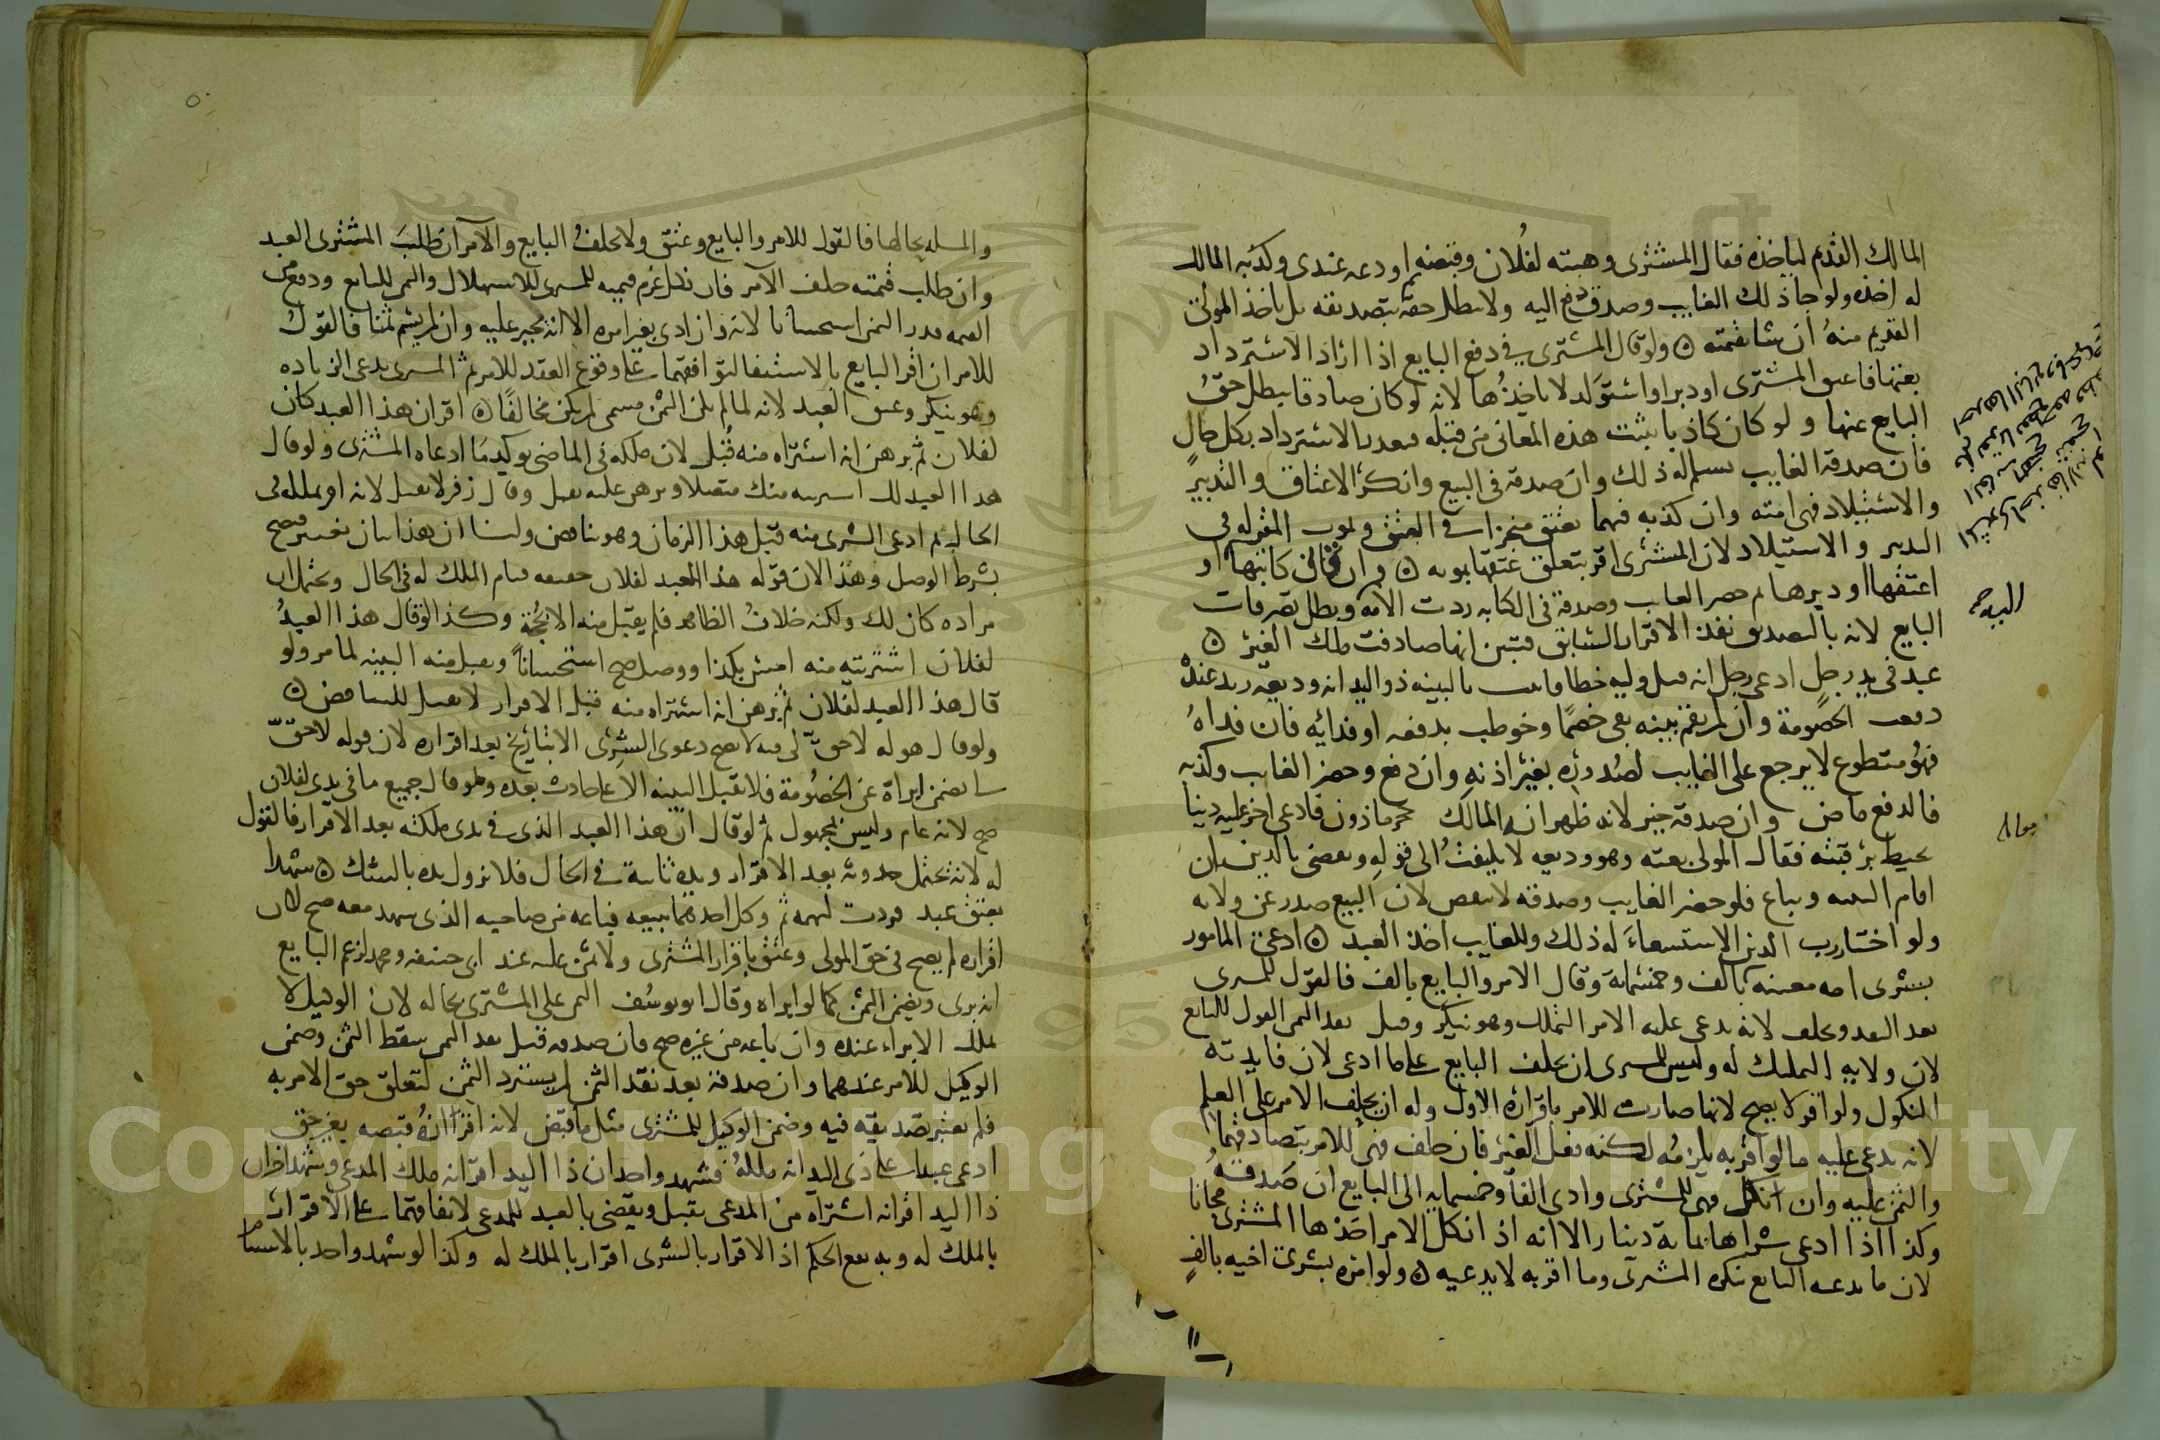 المالك القديم لياخذه فقال المشترى وهبته لفلان وقبضه ثم اودعه عندى وكذبه المالك
له اخذه ولو جا ذلك الغايب وصدق دفع اليه ولا يبطل حقه بتصديقه بل ياخذ المولى
القديم منه ان شا بقيمته ٥ ولو قال المشترى فى دفع البايع اذا اراد الاسترداد
بعتها فاعتق المشترى او دبر او استولد لا ياخذها لانه لو كان صادقا يبطل حق
البايع عنها ولو كان كاذبا يثبت هذه المعانى من قبله فيعذر بالاسترداد بكل حال
فان صدقه الغايب يسلم له ذلك وان صدقه فى البيع وانكر الاعتاق والتدبير
والاستيلاد فهى امته وان كذبه فيهما يعتق منجزا فى العتق وبموت المقر له فى
التدبير والاستيلاد لان المشترى اقر بتعلق عتقها بموته ٥ وان قال كاتبها او
اعتقها او دبرها ثم حضر الغايب وصدقه فى الكتابه ردت الامه ويبطل تصرفات
البايع لانه بالتصديق نفذ الاقرار السابق فتبين انها صادفت ملك الغير ٥
عبد فى يد رجل ادعى رجل انه قتل وليه خطا فاثبت بالبينه ذو اليد انه وديعه زيد عنده
دفعت الخصومة وان لم يقم بينه بقى خصما وخوطب بدفعه او فدائه فان فداه
فهو متطوع لا يرجع على الغايب لصدوره بغير اذنه وان دفع وحضر الغايب وكذبه
فالدفع ماض وان صدقه خير لانه ظهر انه المالك حجر ماذون فادعى اخر عليه دينا
يحيط برقبته فقال المولى بعته وهو وديعه لا يلتفت الى قوله ويقضى بالدين ان
اقام البينه ويباع فلو حضر الغايب وصدقه لا ينقض لان البيع صدر عن ولايه
ولو اختار رب الدين الاستسعاء له ذلك وللغايب اخذ العبد ٥ ادعى المامور
بشرى امه معينه بالف وخمسماية وقال الامر والبايع بالف فالقول للمشترى
بعد النقد ويحلف لانه يدعى عليه الامر التملك وهو ينكر وقبل نقد الثمن القول للبايع
لان ولايه التمليك له وليس للمشترى ان يحلف البايع على ما ادعى لان فايدته
النكول ولو اقر لا يصح لانها صارت للامر باقراره الاول وله ان يحلف الامر على العلم
لانه يدعى عليه ما لو اقر به يلزمه لكنه فعل الغير فان حلف فهى للامر بتصادقهما
والثمن عليه وان انكل فهى للمشترى وادى الفا وخمسمايه الى البايع ان صدقه
وكذا اذا ادعى شراها بماية دينار الا انه اذ انكل الامر اخذها المشترى مجانا
لان ما يدعيه البايع ينكره المشترى وما اقر به لا يدعيه ٥ ولو امره بشرى اخيه بالف
والمسله بحالها فالقول للامر والبايع وعتق ولا يحلف البايع والآمر ان طلب المشترى العبد
وان طلب قيمته حلف الآمر فان نكل غرم قيمته للمشترى للاستهلاك والثمن للبايع ودفع من
القيمه قدر الثمن استحسانا لانه وان ادى بغير امره الا انه يجبر عليه وان لم يسم ثمنا فالقول
للامر ان اقر البايع بالاستيفا لتوافقهما على وقوع العقد للامر ثم المشترى يدعى الزياده
وهو ينكر وعتق العبد لانه لما لم يكن الثمن مسمى لم يكن مخالفا ٥ اقر ان هذا العبد كان
لفلان ثم برهن انه اشتراه منه قبل لان ملكه فى الماضى يوكد ما ادعاه المشترى ولو قال
هذا العبد لك اشتريته منك متصلا وبرهن عليه يقبل وقال زفر لا يقبل لانه اقر بملكه فى
الحال ثم ادعى الشرى منه قبل هذا الزمان وهو تناقض ولنا ان هذا بيان تغيير فيصح
بشرط الوصل وهذا لان قوله هذا العبد لفلان حقيقه قيام الملك له فى الحال ويحتمل ان
مراده كان لك ولكنه خلاف الظاهر فلم يقبل منه الا بحجة وكذا لو قال هذا العبد
لفلان اشتريته منه امس بكذا ووصل صح استحسانا ويقبل منه البينه لما مر ولو
قال هذا العبد لفلان ثم برهن انه اشتراه منه قبل الاقرار لا يقبل للتناقض ٥
ولو قال هو له لا حق لى فيه لا يصح دعوى الشرى الا بتاريخ بعد اقراره لان قوله لا حق
لى يضمن ابراة عن الخصومة فلا تقبل البينه الا على حادث بعده ولو قال جميع ما فى يدى لفلان
صح لانه عام وليس بمجهول ثم لو قال ان هذا العبد الذى فى يدى ملكته بعد الاقرار فالقول
له لانه يحتمل حدوثه بعد الاقرار ويده ثابتة فى الحال فلا تزول يده بالشك ٥ شهدا
بعتق عبد فردت لتهمه ثم وكل احدهما ببيعه فباعه من صاحبه الذى شهد معه صح لان
اقراره لم يصح فى حق المولى وعتق باقرار المشترى ولا ثمن عليه عند ابى حنيفه ومحمد لزعم البايع
انه برى ويضمن الثمن كما لو ابراه وقال ابو يوسف الثمن على المشترى بحاله لان الوكيل لا
يملك الابراء عنده وان باعه من غيره صح فان صدقه قبل نقد الثمن سقط الثمن وضمن
الوكيل للامر عندهما وان صدقه بعد نقد الثمن لم يسترد الثمن لتعلق حق الامر به
فلم يعتبر تصديقه فيه وضمن الوكيل للمشترى مثل ما قبض لانه اقر انه قبضه بغير حق
ادعى عبدا على ذى اليد انه ملكه فشهد واحد ان ذا اليد اقر انه ملك المدعى وشهد اخر ان
ذا اليد اقر انه اشتراه من المدعى يقبل ويقضى بالعبد للمدعى لاتفاقهما على الاقرار
بالملك له وبه يقع الحكم اذ الاقرار بالشرى اقرار بالملك له وكذا لو شهد واحد بالاستيام
Copyright © King Saud University